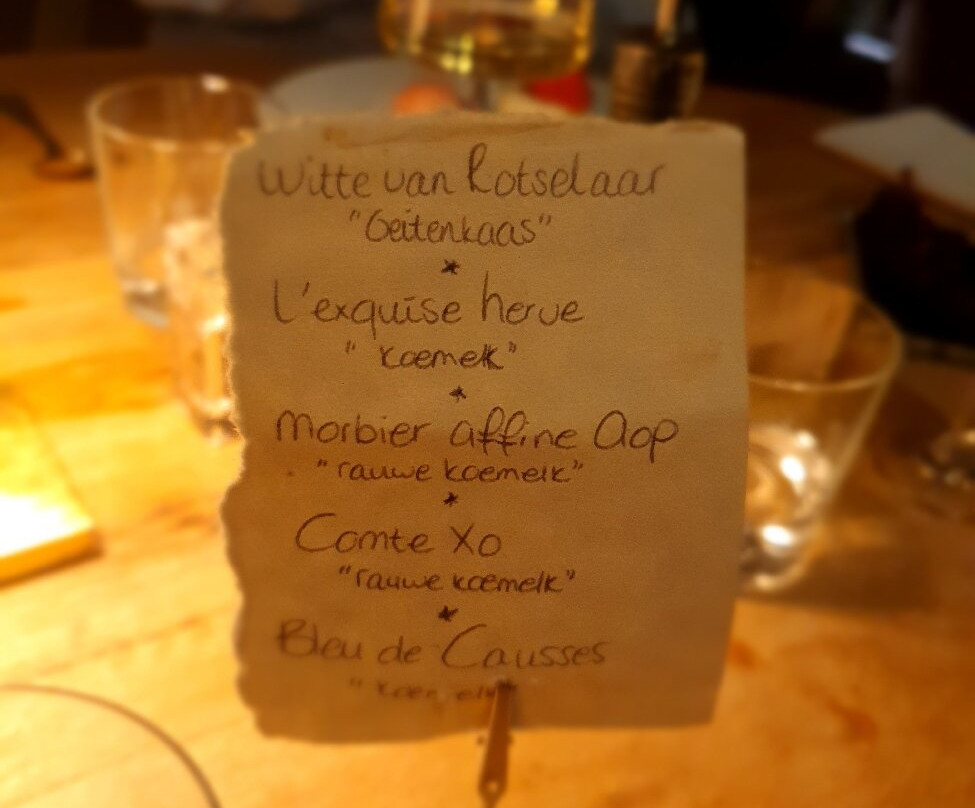 Witte van Rotselaar
"Geitenkaas"
*
L'exquise herve
"Koemelk"
*
Morbier affine Aop
"rauwe koemelk"
*
Comte Xo
"rauwe koemelk"
*
Bleu de Causses